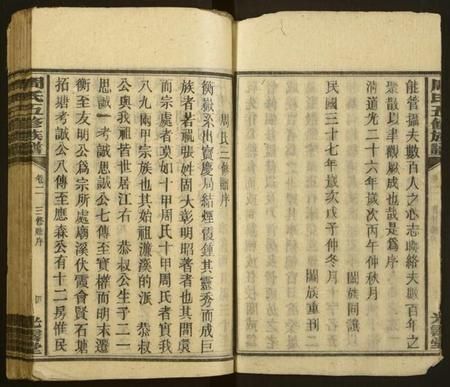 能管攝夫數百人之心志聯絡夫數百年之
聚散以聿觀厥成也哉是爲序
清道光二十六年歲次丙午仲秋月
闔族同譔
民國三十七年歲次戊子仲冬月
闔族重刊
周氏三修譜序
衡嶽來出寶慶局結煙霞鍾其靈秀而成巨
族者若祖張姓固大彰明昭著者也其間眞
而宗處者莫如十甲周氏十甲周氏者實我
八九兩甲宗族也其始祖濂溪的派 恭叔
公與我祖皆世居江右 恭叔公生子二一
思誠一考誠思誠公七傳至寶權而明末遷
衡至友明公爲宗所處廟溪伏霞會賢石塘
拓塘考誠公八傳至應森公有十二房惟民
周氏五修族譜
卷二
三修譜序
光霽堂